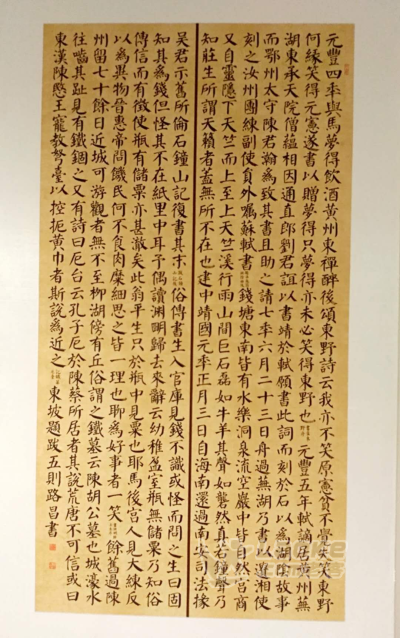 元豐四年與馬夢得飲酒黃州東禪醉後頌東野詩云我亦不笑原憲貧不覺失笑東野
何緣笑得元憲遂書以贈夢得只夢得亦未必笑得東野也 元豐五年軾謫居黃州無
湖東承天院僧蘊相因通直郎劉君誼以書請於軾願書此詞而刻於石以為湖陰故事
而鄂州太守陳君瀚為致其書且助之請七年六月二十三日舟過無湖乃書以遺湘使
刻之汝州團練副使員外蘇軾書 錢塘東南皆有水樂洞泉流空巖中皆自然宮商
又自靈隱下天竺而上至上天竺溪行兩山間巨石磊如牛羊其聲礱然真若鐘聲乃
知莊生所謂天籟者蓋無所不在也建中靖國元年正月三日自海南還過南安司法掾
吳君示舊所倫石鐘山記復書其末 俗傳書生入官庫見錢不識或怪而問之生曰固
知其為錢但怪其不在紙裡中耳予偶讀淵明歸去來辭云幼稚盈室瓶無儲粟乃知俗
傳信而有徵使瓶有儲粟亦甚微矣此翁平生只於瓶中見粟也耶馬後宮人見大練反
以為異物晉惠帝問饑民何不食肉糜細思之皆一理也聊為好事者一笑 餘舊過陳
州留七十餘日近城可游觀者無不至柳湖傍有丘俗謂之鐵墓云陳胡公墓也城濠水
往嚙其趾見有鐵錮之又有詩曰厄台云孔子厄於陳蔡所居者其說荒唐不可信或曰
東漢陳愍王寵教弩臺以控扼黃巾者斯說為近之 東坡題跋五則路昌書